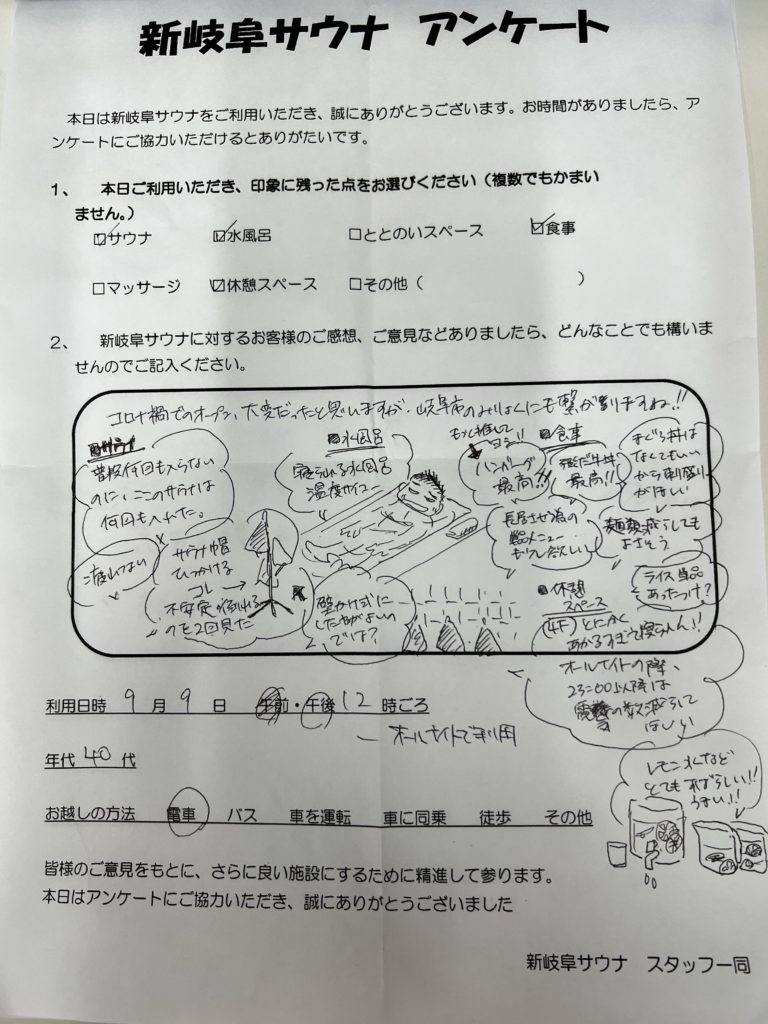 新岐阜サウナ アンケート
本日は新岐阜サウナをご利用いただき、誠にありがとうございます。お時間がありましたら、ア
ンケートにご協力いただけるとありがたいです。
1、 本日ご利用いただき、印象に残った点をお選びください（複数でもかまい
ません。）
☑サウナ ☑水風呂 □ととのいスペース ☑食事
□マッサージ ☑休憩スペース □その他（ ）
2、 新岐阜サウナに対するお客様のご感想、ご意見などありましたら、どんなことでも構いま
せんのでご記入ください。
コロナ禍でのオープン、大変だったと思いますが、岐阜市のみりょくにも繋がりますね!!
■サウナ
普段何回も入らない
のに、ここのサウナは
何回も入れた。
サウナ帽
ひっかける
コレ
不安定で倒れる
のを2回見た
壁かけ式に
した方がよいの
では?
■水風呂
寝られる水風呂
温度サイコー
■食事
もっと推して
ヨシ!!
ハンバーグ
最高!!
牛丼
最高!!
まぐろ丼は
なくてもいい
から刺盛り
がほしい
長居させる為の
メニュー
もう少し欲しい
麺類減らしても
よさそう
ライス単品
あったっけ?
■休憩
スペース
(4F)とにかく
あかるすぎて寝らんれん!!
オールナイトの際、
23:00以降は
電気の数減らして
ほしい
利用日時 9 月 9 日 午前・午後 12 時ごろ
オールナイトで利用
年代 40 代
お越しの方法 電車 バス 車を運転 車に同乗 徒歩 その他
レモン水など
とてもすばらしい!!
うまい!!
皆様のご意見をもとに、さらに良い施設にするために精進して参ります。
本日はアンケートにご協力いただき、誠にありがとうございました
新岐阜サウナ スタッフ一同